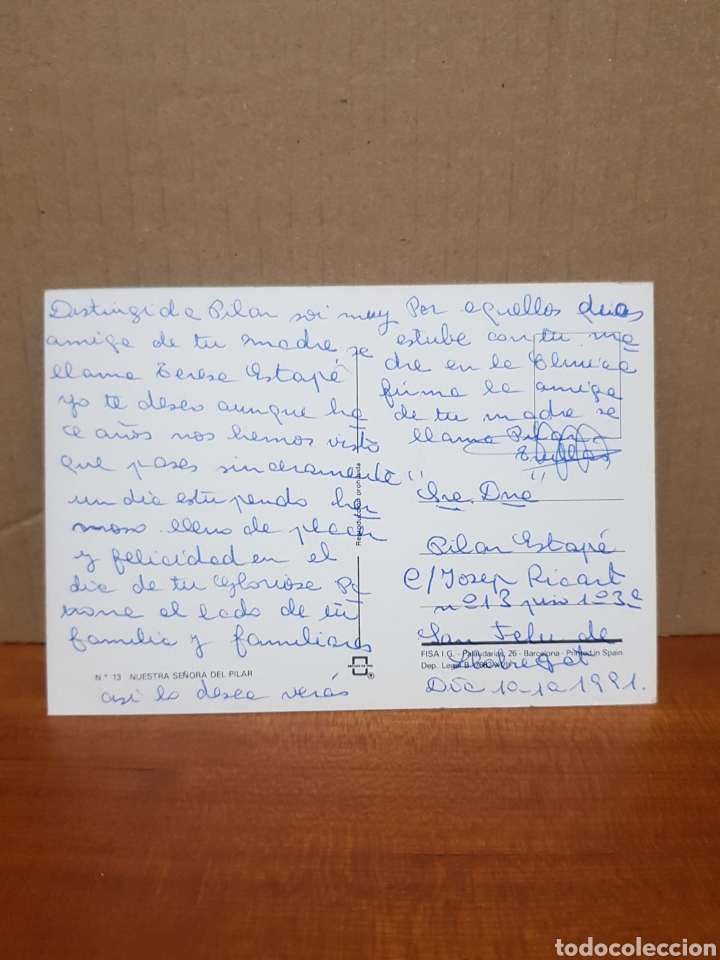 Distingida Pilar soi muy
amiga de tu madre se
llama Terese Estapé
yo te deseo aunque ha
ce años nos hemos visto
que pases sinceramente
un dia estupendo her
moso lleno de placer
y felicidad en el
dia de tu Gloriose Pa
trona al lado de tu
familia y familiares
Nº 13 NUESTRA SEÑORA DEL PILAR
asi lo desea verás
Por aquellos dias
estube con tu ma
dre en la Clinica
firma la amiga
de tu madre se
llama Pilar
Reproducción prohibida
"Sra. Dña"
Pilar Estapé
C/ Josep Ricart
nº 13 piso 1º 3ª
San Feliu de
FISA I.G. - Palaudarias, 26 - Barcelona - Printed in Spain
Dep. Legal B.
Llobregat
Dia 10-10 1991.
todocoleccion